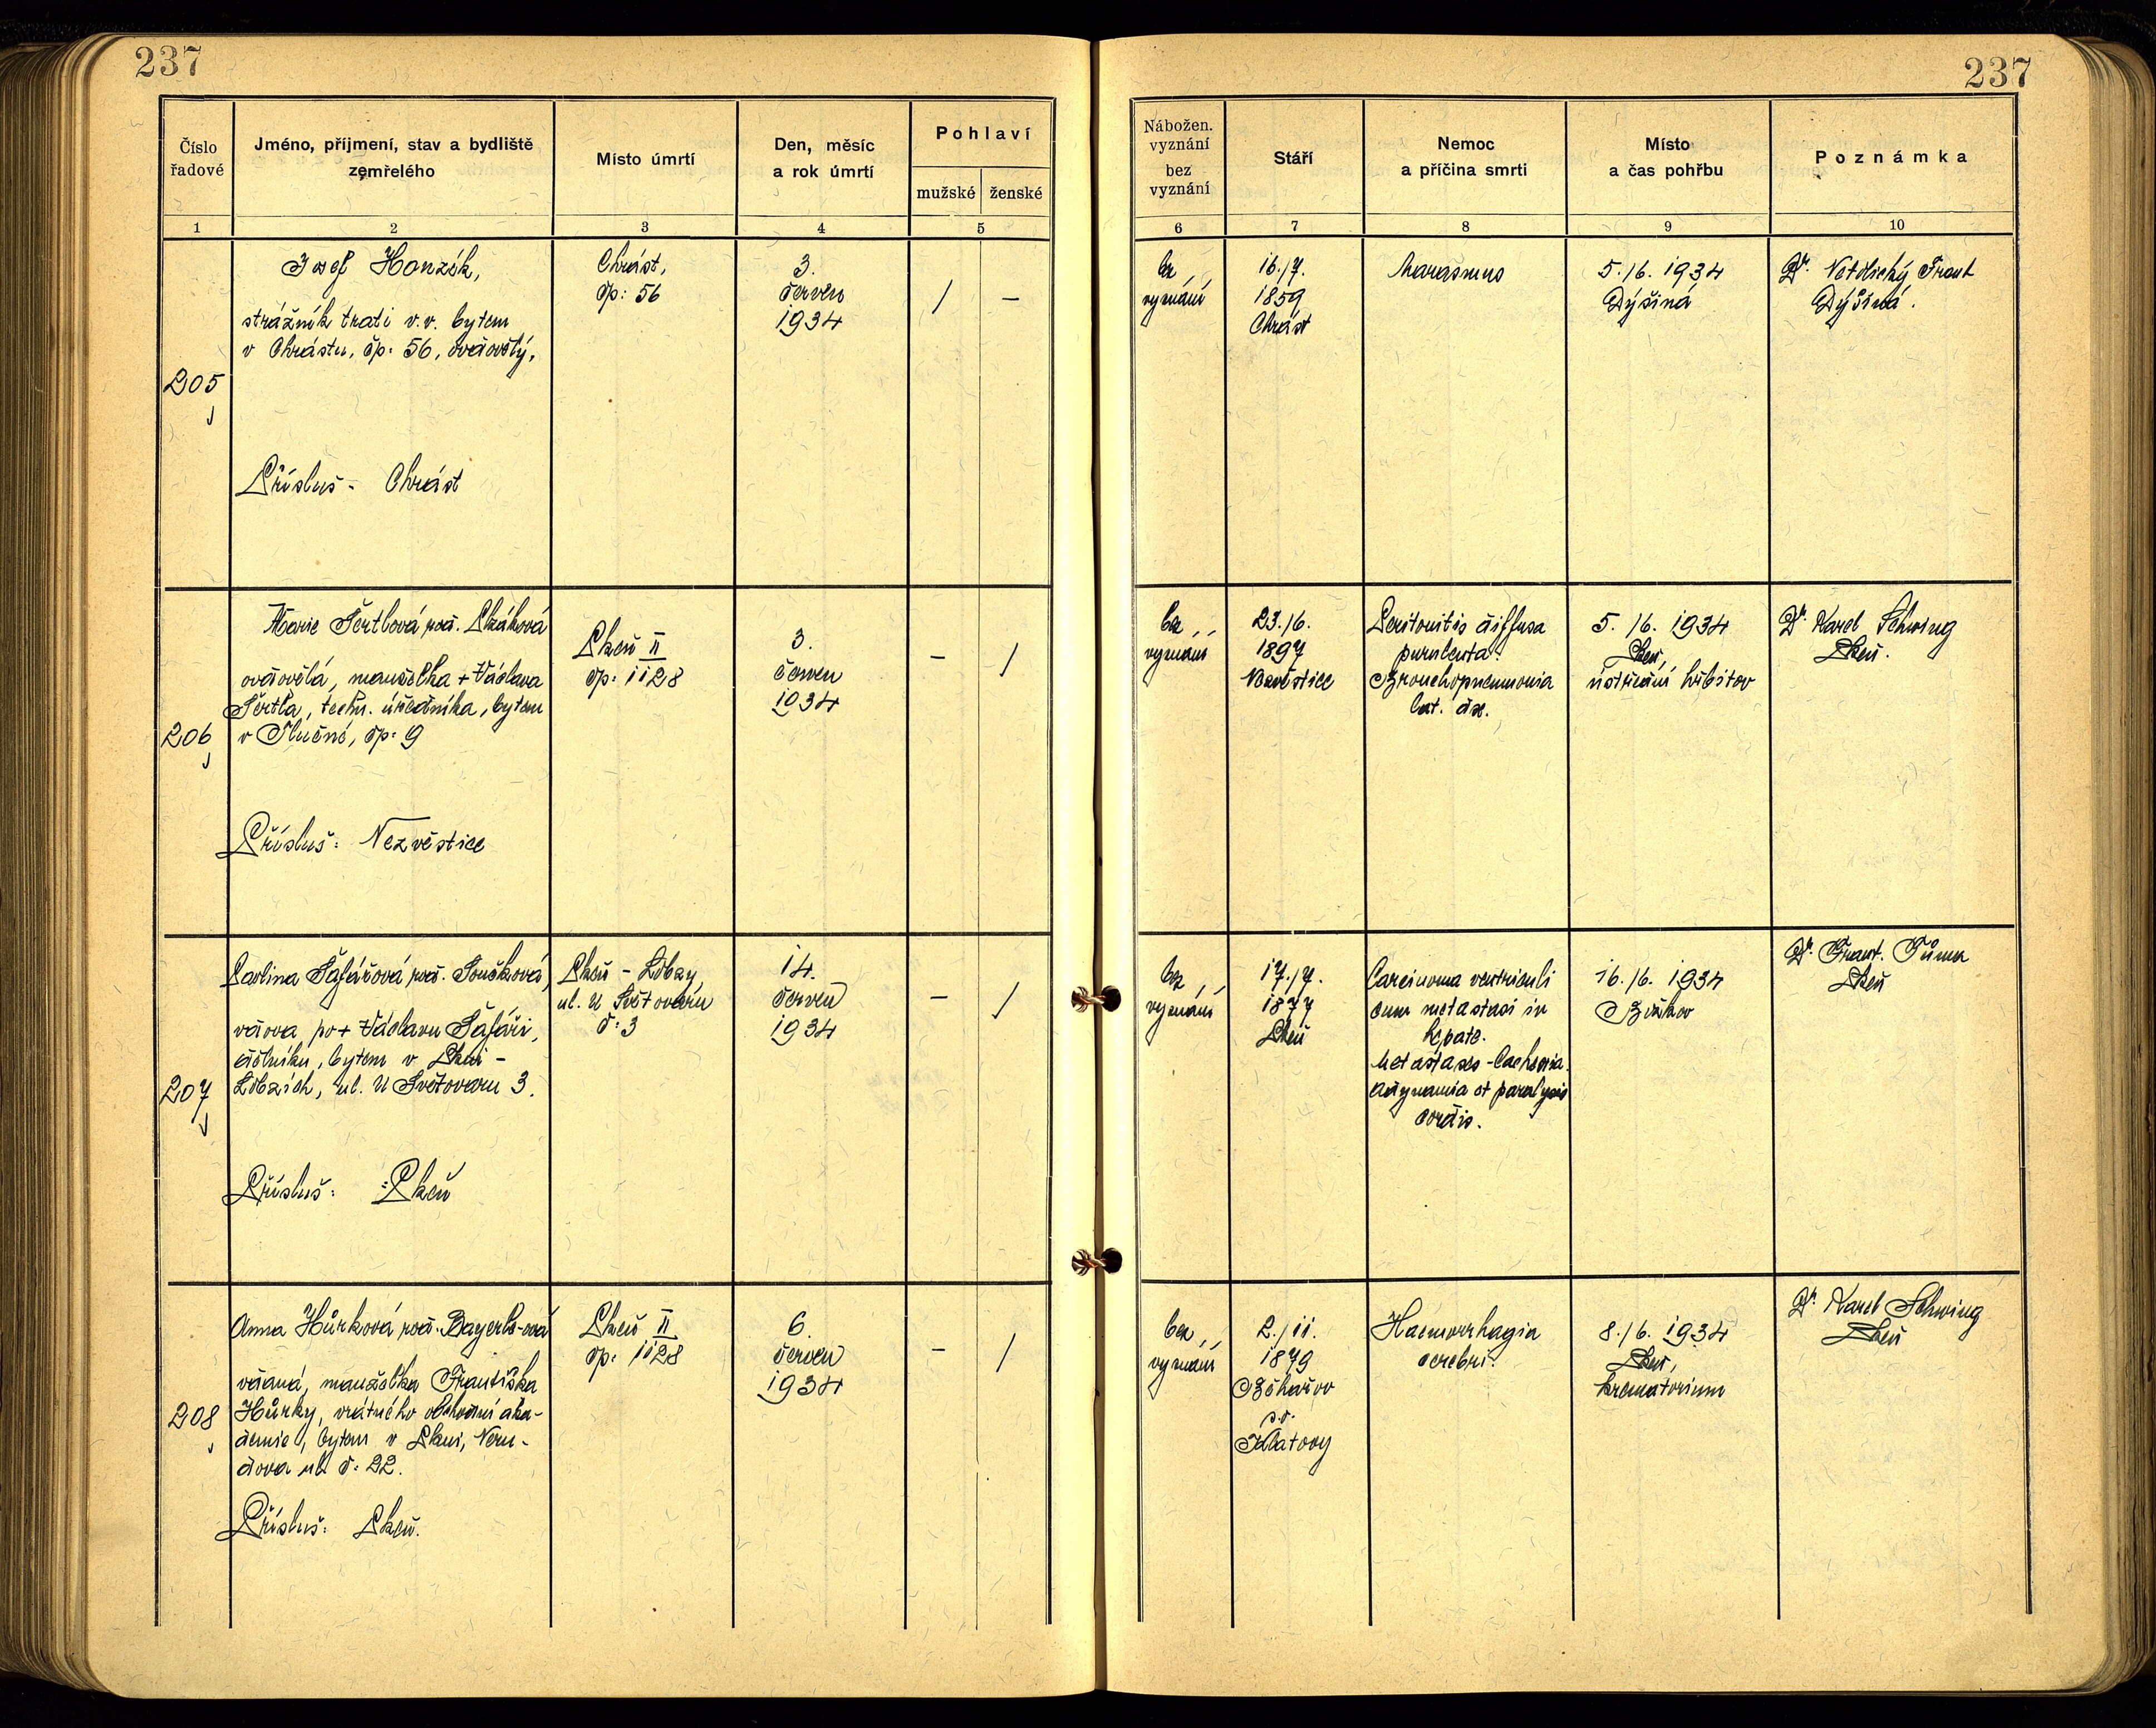 237
237
Číslo řadové
Jméno, příjmení, stav a bydliště zemřelého
Místo úmrtí
Den, měsíc a rok úmrtí
Pohlaví
mužské
ženské
Nábožen. vyznání
bez vyznání
Stáří
Nemoc a příčina smrti
Místo a čas pohřbu
Poznámka
1 2 3 4 5 6 7 8 9 10
205
Josef Honzík,
strážník trati v.v. bytem
v Chrástu, čp: 56, ovdovělý,
Přísluš - Chrást
Chrást,
čp: 56
3.
červen
1934
/ –
bez
vyznání
16./7.
1859
Chrást
Marasmus
5./6. 1934
Dýšiná
Dr.
Dýšiná.
206
Marie roz.
ovdovělá, manželka + Václava
techn. úředníka, bytem
v čp: 9
Přísluš: Nezvěstice
Plzeň II
čp: 1128
3.
červen
1934
– /
bez
vyznání
23./6.
1897
Peritonitis diffusa
purulenta.
Bronchopneumonia
lat. dx.
5./6. 1934
Plzeň,
ústřední hřbitov
Dr. Karel Schwing
Plzeň.
207
Pavlina Šafářová roz. Součková,
vdova po + Václavu Šafáři,
dělníku, bytem v Plzni -
Lobzích, ul. U Světovaru 3.
Přísluš: Plzeň
Plzeň - Lobzy
ul. U Světovaru
č: 3
14.
červen
1934
– /
bez
vyznání
17./7.
1877
Plzeň
Carcinoma ventriculi
cum metastasi in
hepate.
Metastases - Cachexia.
Adynamia et paralysis
cordis.
16./6. 1934
Božkov
Dr. Frant. Tůma
Plzeň
208
Anna Hůrková roz. Bayerle-ová
vdaná, manželka Františka
Hůrky, vrátného obchodní aka-
demie, bytem v Plzni, Neru-
dova ul. č: 22.
Přísluš: Plzeň.
Plzeň II
čp: 1128
6.
červen
1934
– /
bez
vyznání
2./11.
1879
Běhařov
p.o.
Klatovy
Haemorrhagia
cerebri.
8./6. 1934
Plzeň,
krematorium
Dr. Karel Schwing
Plzeň